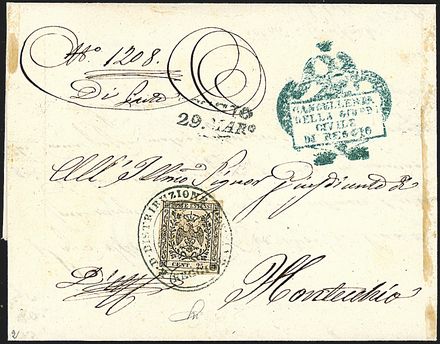 No 1208.
REGGIO
29. MARo
CANCELLERIA
DELLA GIUSD
CIVILE
DI REGGIO
All' Illmo Signor Giusdicente di
DISTRIBUZIONE
CENT. 25
Montecchio